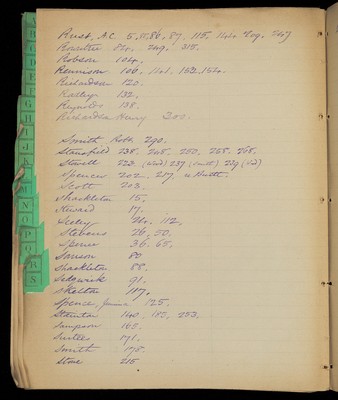 Rust, A.C. 5, 55, 86, 87, 115, 144. 209. 247
Rowntree 24. 249. 315.
Robson 104.
Rennison 106, 141, 152, 154.
Richardson 120.
Ratley 132.
Reynolds 138.
Richardson Henry 300.
Smith Robt. 290.
Stansfield 238. 245. 252. 258. 268.
Stowell 222. 237 239
Spencer. 202. 217.
Scott 203.
Shackleton 15.
Steward 17.
Seeley 24. 112.
Stevens 26, 50.
Spence 36. 65.
Sanson 80
Shackleton 88.
Sedgwick 91.
Skelton 117.
Spence, 125.
Staunton 140. 183. 253.
Sampson 165.
171.
Smith 178.
Stone 215
G
H
I
J
K
M
N
O
P
R
S